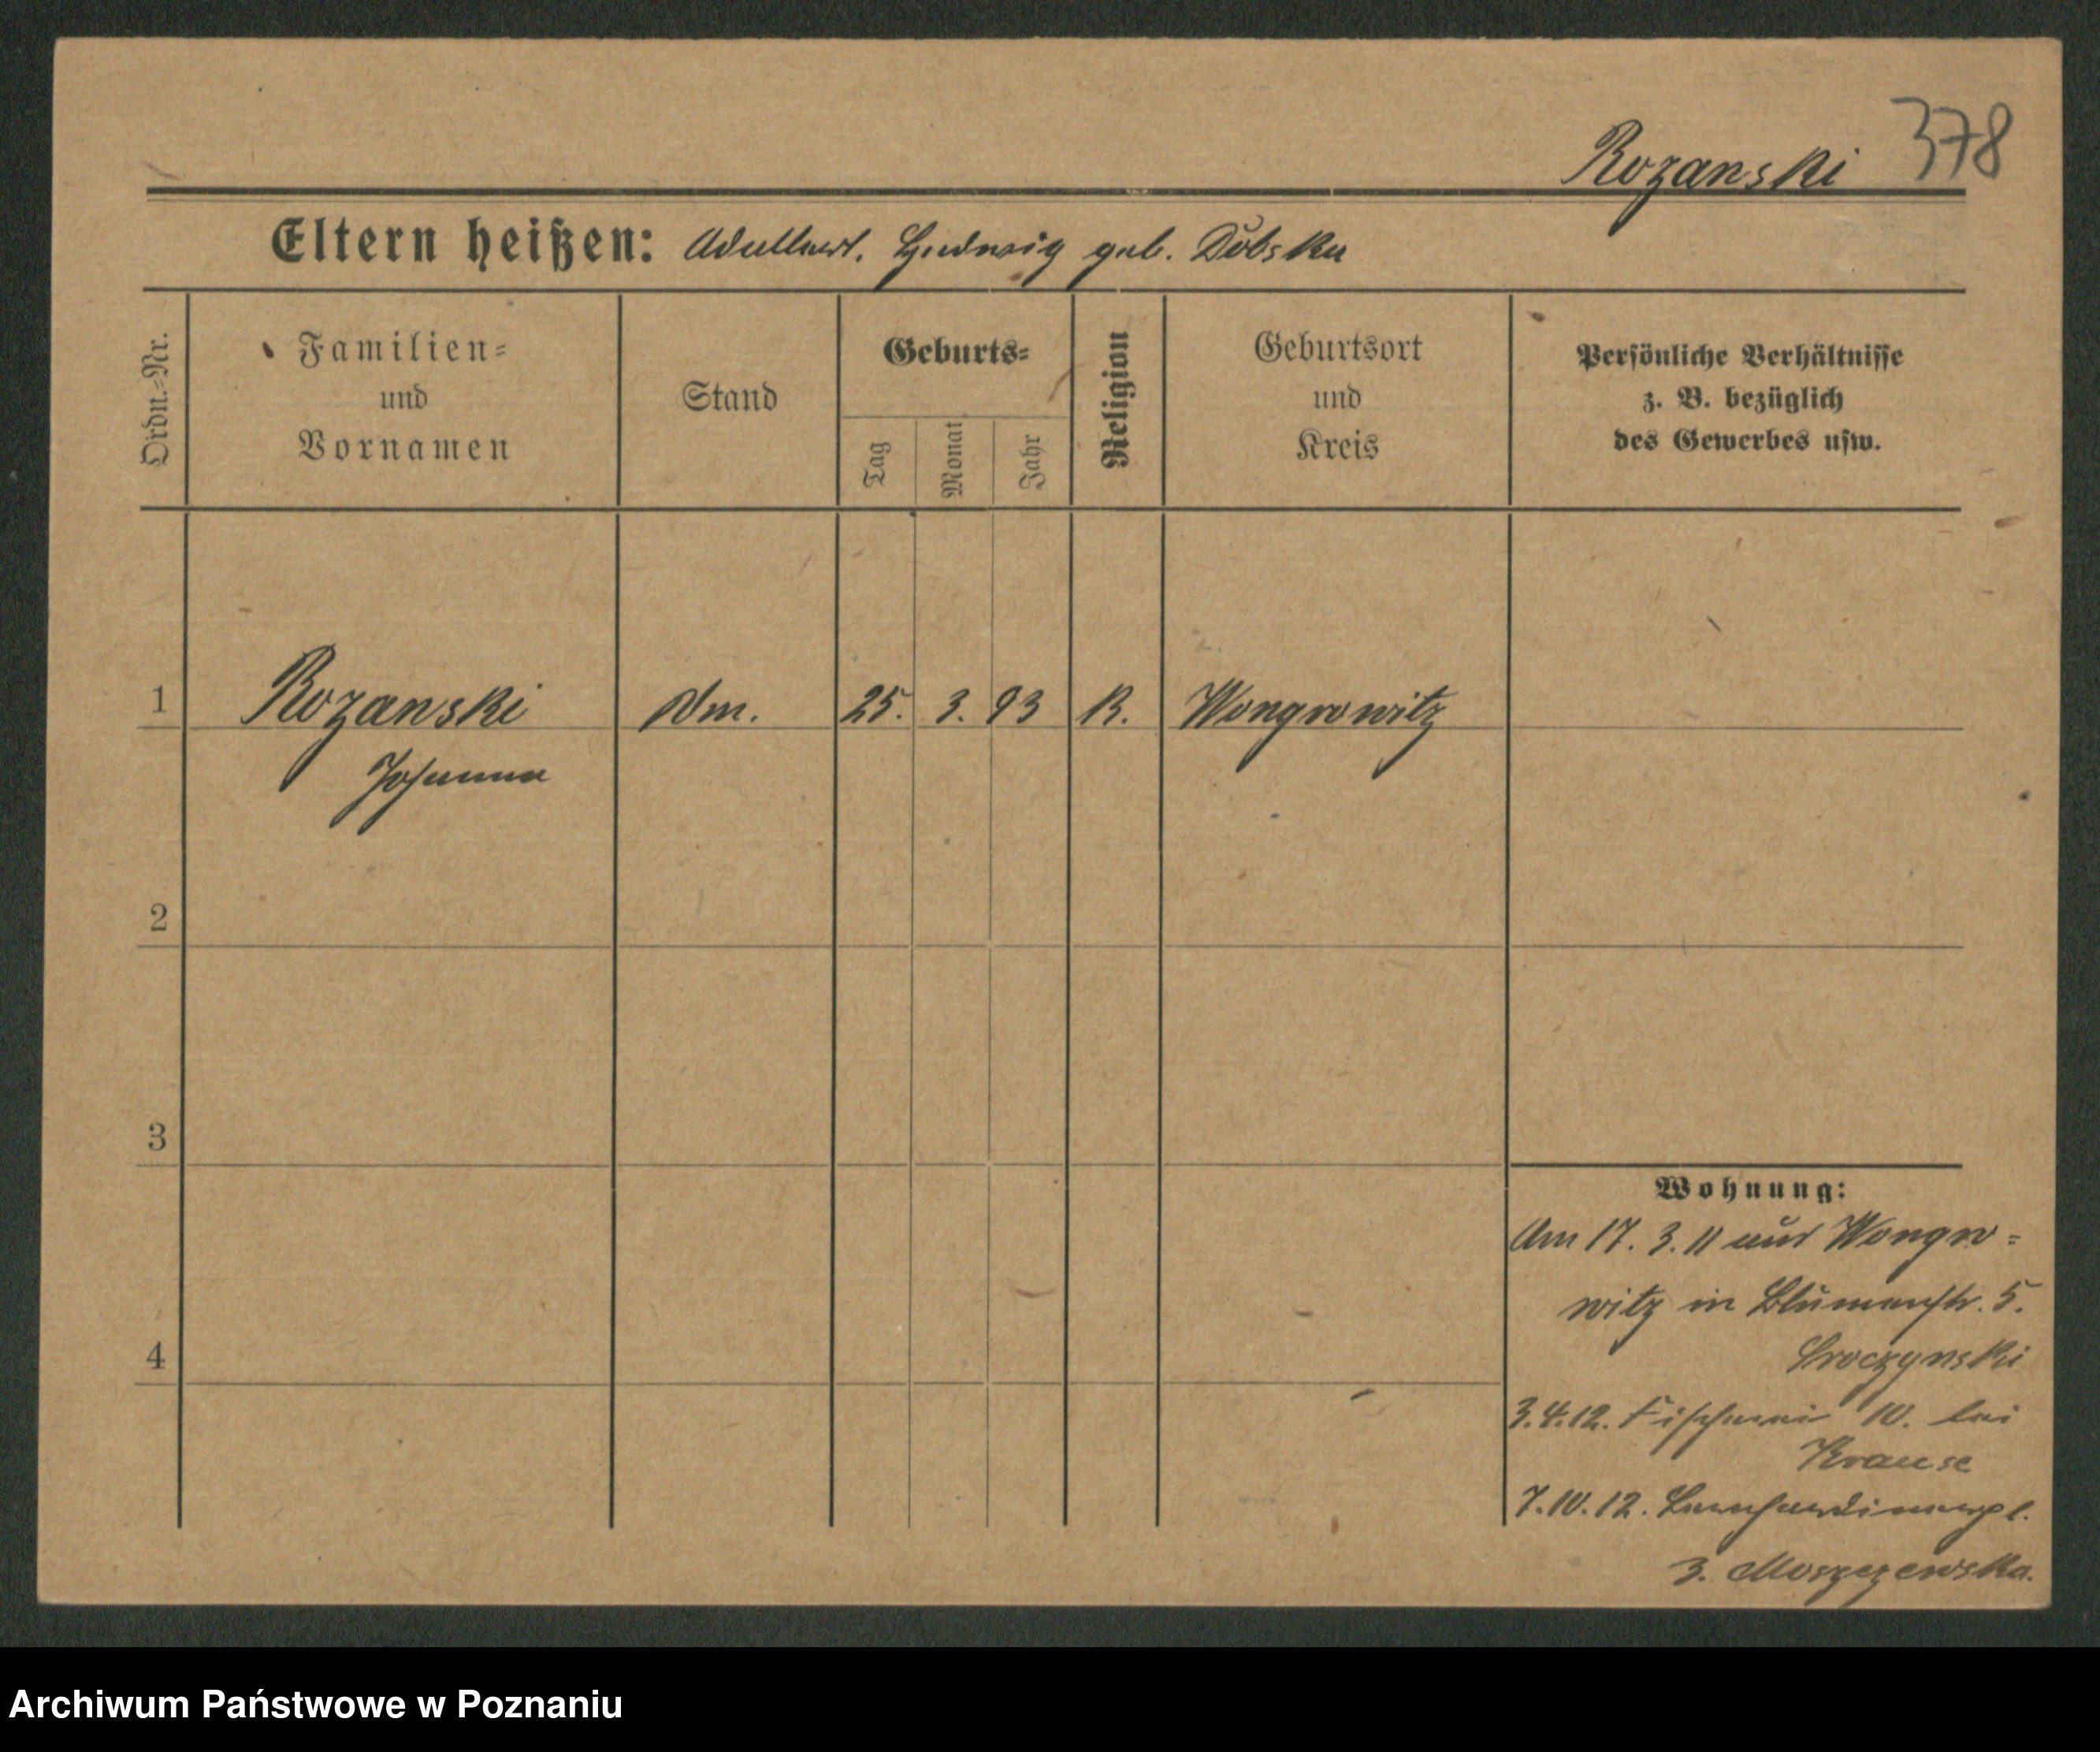 Rozanski 378
Eltern heißen: Adalbert. Hedwig geb. Dubska
Ordn.=Nr.
Familien=
und
Vornamen
Stand
Geburts=
Tag
Monat
Jahr
Religion
Geburtsort
und
Kreis
Persönliche Verhältnisse
z. B. bezüglich
des Gewerbes usw.
1 Rozanski 25. 3. 93 R. Wongrowitz
Johanna
2
3
4
Wohnung:
Am 17. 3. 11 aus Wongro=
witz in Blumenstr. 5.
3.4.12. Fischerei 10. bei
Krause
7.10.12. Bernhardinerpl.
3. Moszczewska.
Archiwum Państwowe w Poznaniu